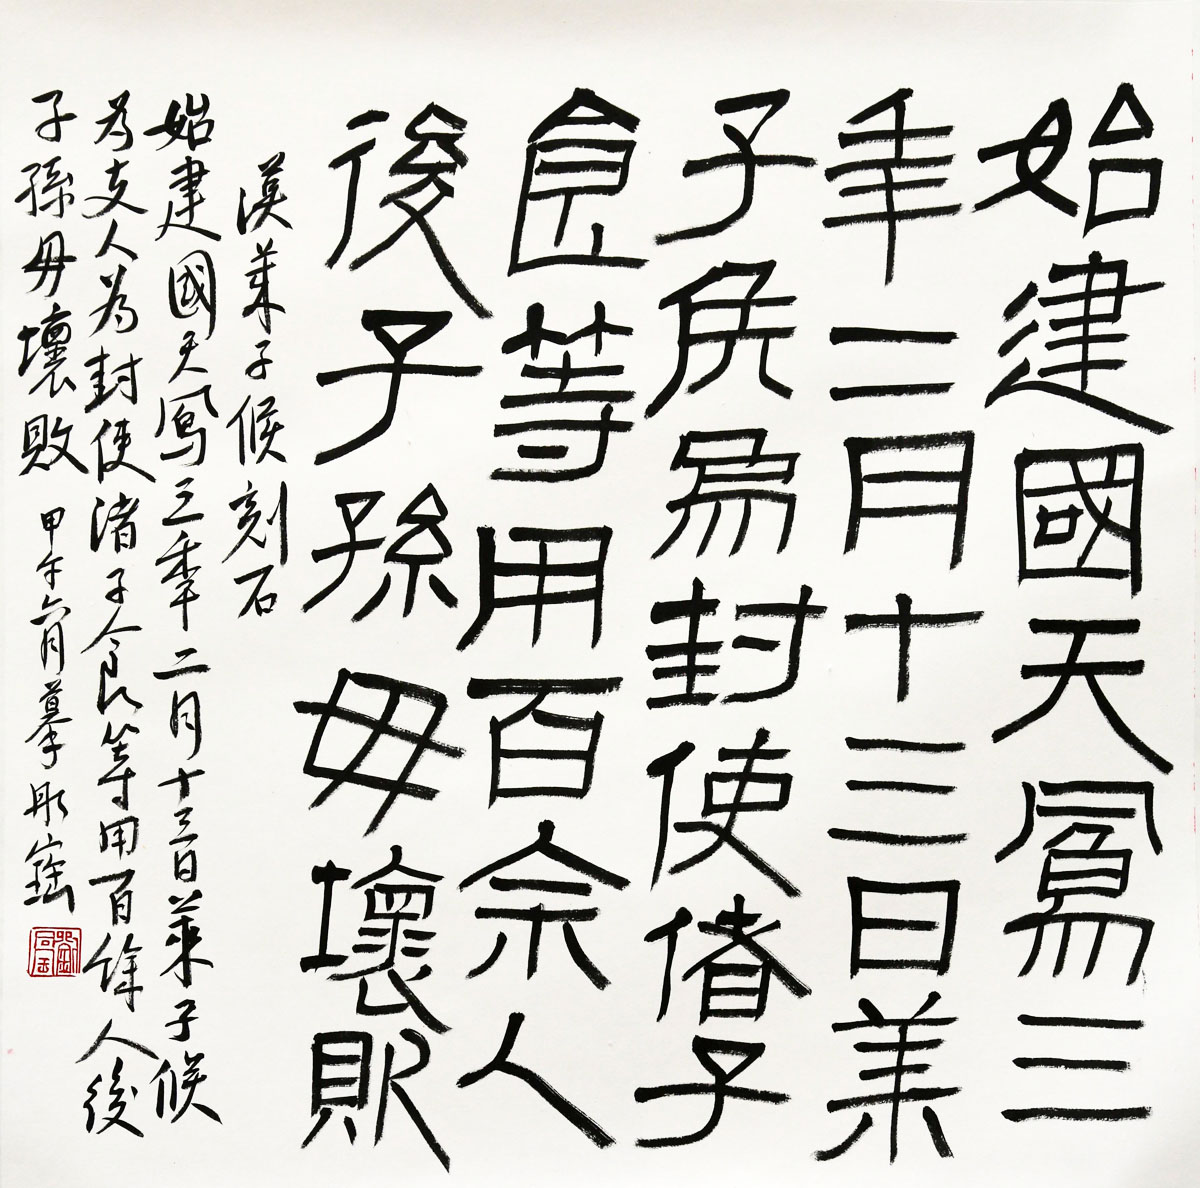 始建國天鳳三
年二月十三日萊
子侯為封使偖子
食等用百余人
後子孫毋壞敗
漢萊子候刻石
始建國天鳳三年二月十三日萊子候
為支人為封使渚子食等用百餘人後
子孫毋壞敗 甲午六月摹